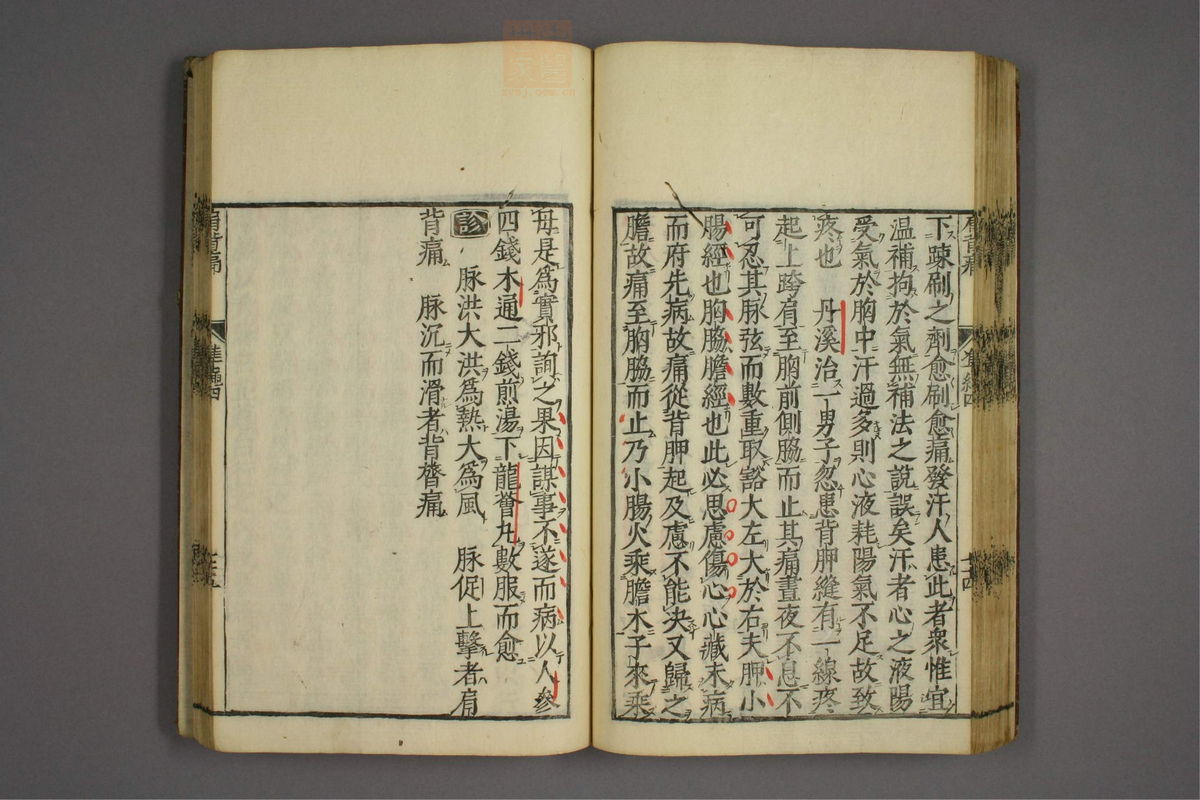 下踈刷之劑愈刷愈痛發汗人患此者衆惟宜
温補拘於氣無補法之說誤矣汗者心之液陽
受氣於胸中汗過多則心液耗陽氣不足故致
疼也　丹溪治一男子忽患背胛縫有一線疼
起上跨肩至胸前側脇而止其痛晝夜不息不
可忍其脉弦而數重取豁大左大於右夫胛小
腸經也胸脇膽經也此必思慮傷心心藏未病
而府先病故痛從背胛起及慮不能决又歸之
膽故痛至胸脇而止乃小腸火乘膽木子來乘
母是為實邪詢之果因謀事不遂而病以人參
四錢木通二錢煎湯下龍薈丸數服而愈
診　脉洪大洪為熱大為風　脉促上擊者肩
背痛　脉沉而滑者背膂痛
肩背痛